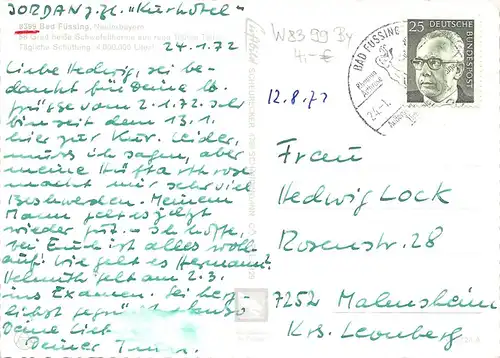 JORDAN z. Zt. "Kurhotel"
8399 Bad Füssing, Niederbayern
56 Grad heiße Schwefeltherme
Tägliche Schüttung: 4 000 000 Liter
24.1.72
Liebe Hedwig, sei be-
dankt für Deine lb.
Grüsse vom 2.1.72. Ich
bin seit dem 13.1.
hier zur Kur. Leider,
muss ich sagen, aber
meine Hüftarthrose
macht mir sehr viel
Beschwerden. Meinem
Mann geht es jetzt
wieder gut. – Ich hoffe,
bei Euch ist alles wohl-
auf! Wie geht es Hermann?
Helmuth geht am 2.3.
ins Examen. Sei herz-
lichst gegrüsst
Deine Lieb
Deiner
W8399 By
4,- €
12.8.73
BAD FÜSSING
24.-1.
25
DEUTSCHE BUNDESPOST
Frau
Hedwig Lock
Rosenstr. 28
7252 Malmsheim
Krs. Leonberg